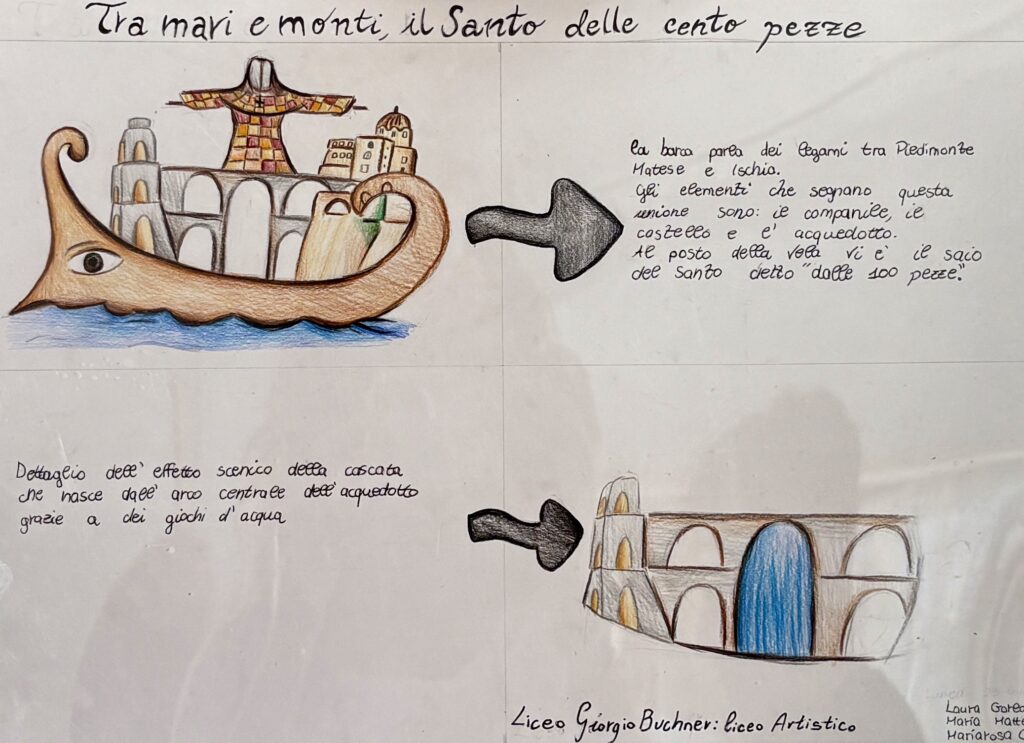 Tra mari e monti, il Santo delle cento pezze
la barca parla dei legami tra Piedimonte
Matese e Ischia.
Gli elementi che segnano questa
unione sono: il campanile, il
castello e l'acquedotto.
Al posto della vela vi è il saio
del Santo detto "dalle 100 pezze".
Dettaglio dell'effetto scenico della cascata
che nasce dall'arco centrale dell'acquedotto
grazie a dei giochi d'acqua
Liceo Giorgio Buchner: liceo Artistico
Laura
Maria
Mariarosa